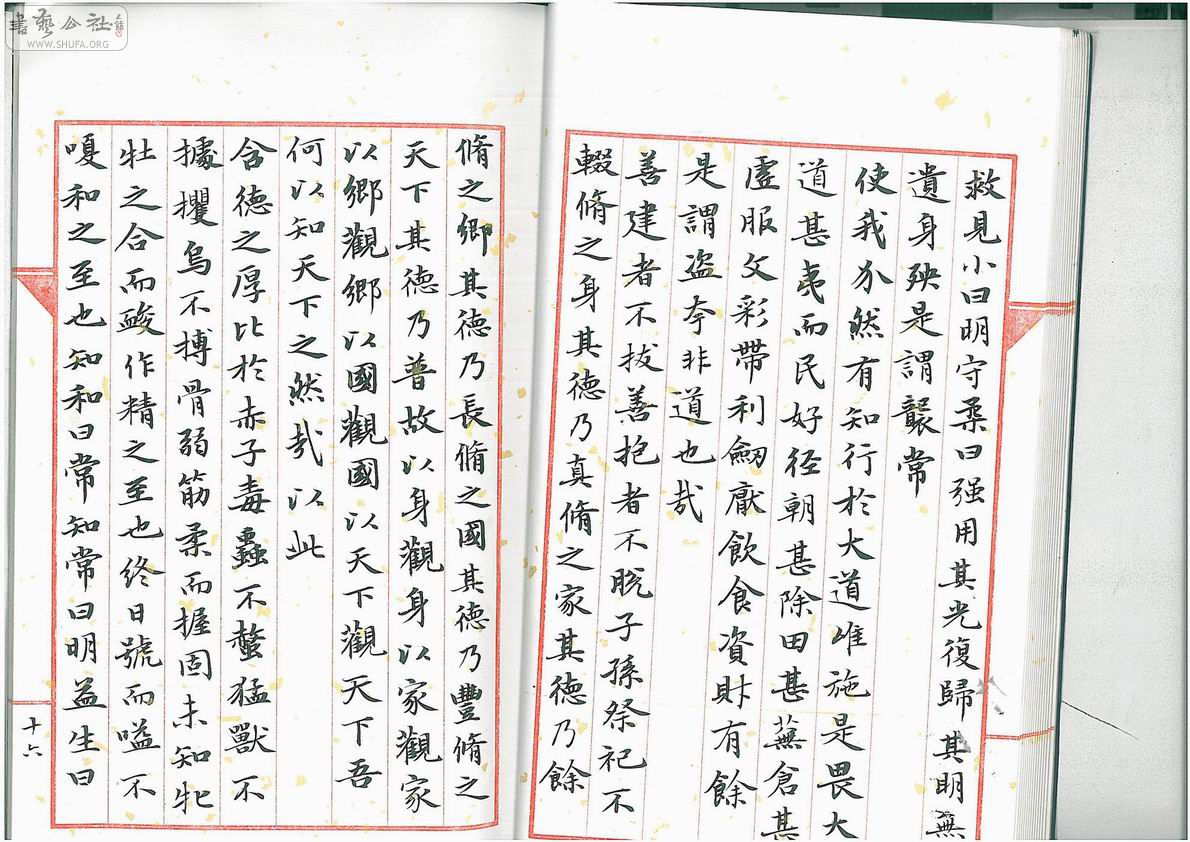 書藝公社
WWW.SHUFA.ORG
救見小曰明守柔曰强用其光復歸其明無
遺身殃是謂襲常
使我介然有知行於大道唯施是畏大
道甚夷而民好径朝甚除田甚蕪倉甚
虛服文彩帶利劔厭飲食資財有餘
是謂盗夸非道也哉
善建者不拔善抱者不脫子孫祭祀不
輟脩之身其德乃真脩之家其德乃餘
脩之鄉其德乃長脩之國其德乃豐脩之
天下其德乃普故以身觀身以家觀家
以鄉觀鄉以國觀國以天下觀天下吾
何以知天下之然哉以此
含德之厚比於赤子毒蟲不螫猛獸不
據攫鳥不搏骨弱筋柔而握固未知牝
牡之合而䘒作精之至也終日號而嗌不
嗄和之至也知和曰常知常曰明益生曰
十六